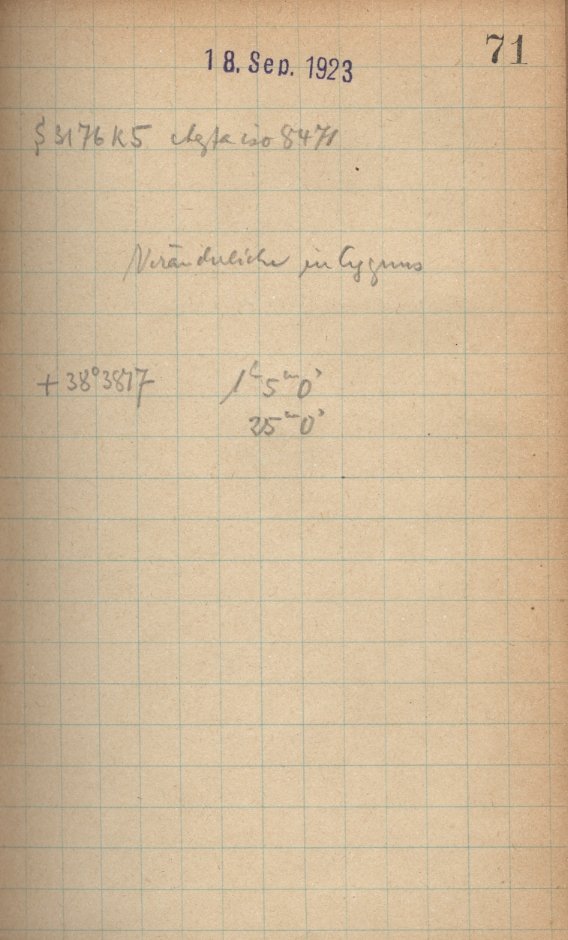 71
18. Sep. 1923
S 3176 K5 Agfa iso 8471
Veränderliche in Cygnus
+38°3817 1ʰ5ᵐ0ˢ
25ᵐ0ˢ